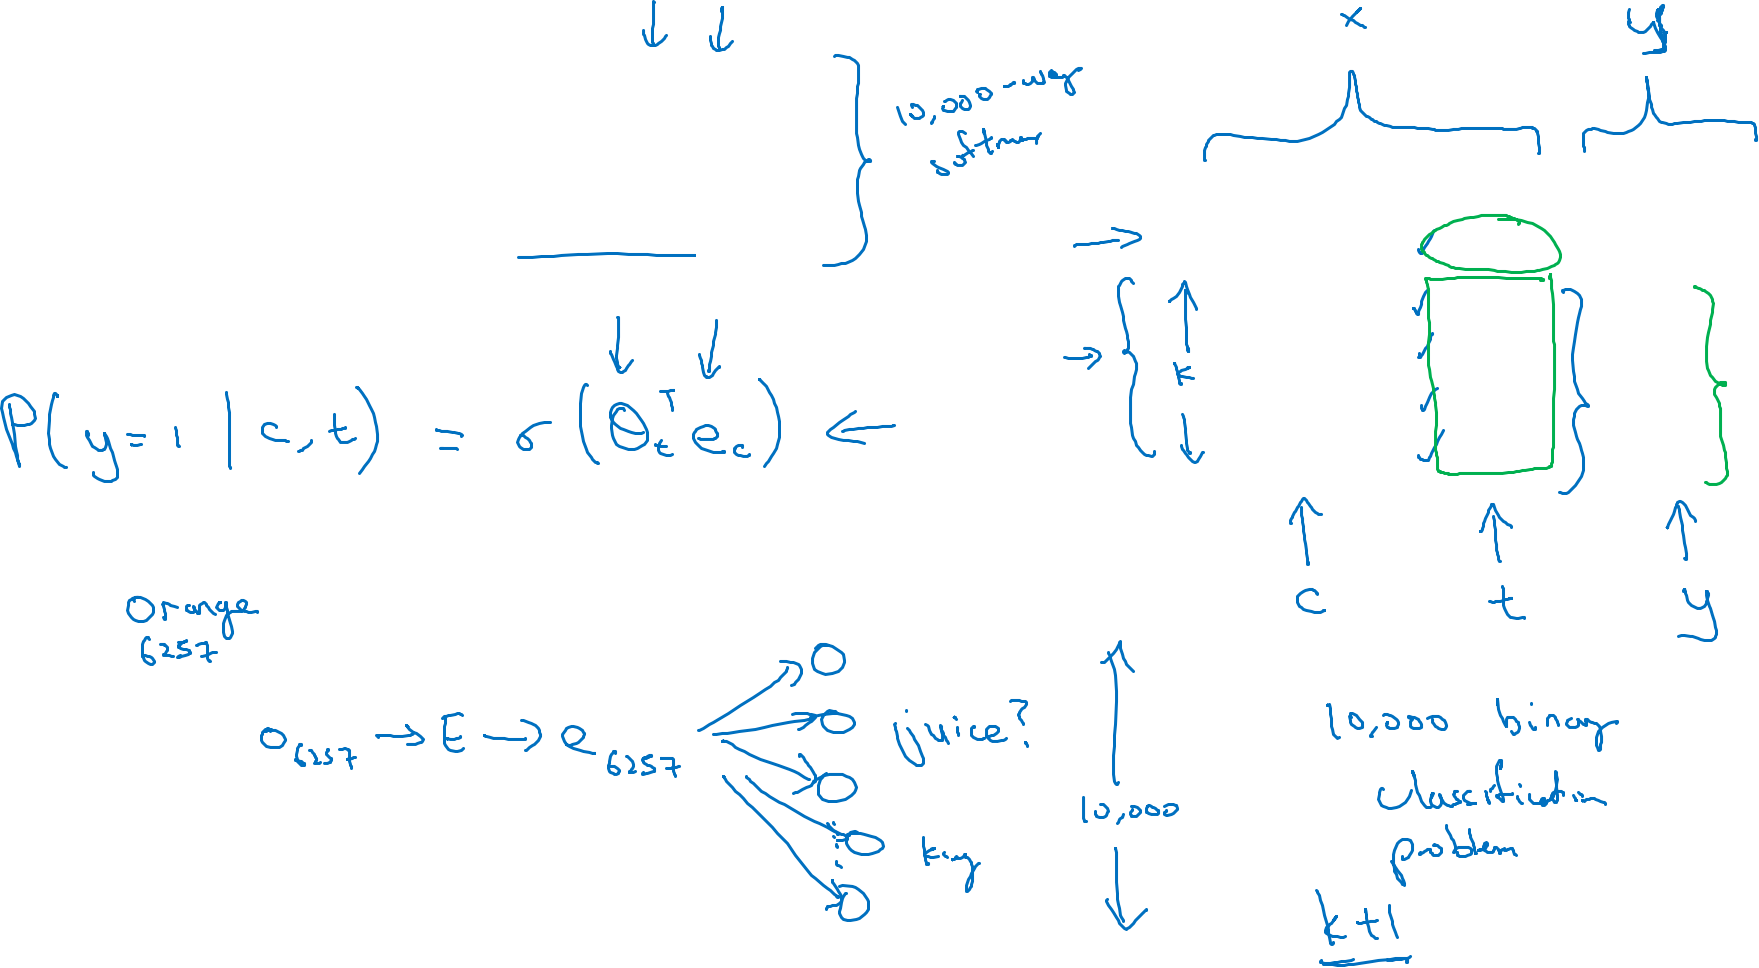 x y
10,000-way
softmax
k
P(y=1 | c,t) = σ(θₜᵀe_c)
c t y
Orange
6257
o₆₂₅₇ → E → e₆₂₅₇
juice?
king
10,000
10,000 binary
classification
problem
k+1